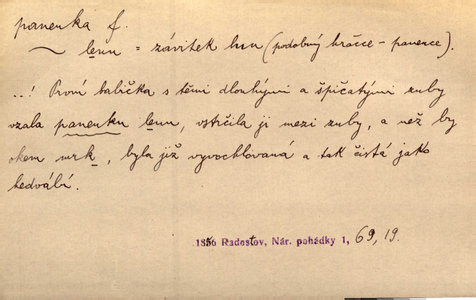 panenka f.
~ lenu = závitek lnu (podobný hračce - panence).
..! První babička s těmi dlouhými a špičatými zuby
vzala panenku lenu, vstrčila ji mezi zuby, a než by
okem mrk, byla již vyvochlovaná a tak čistá jako
hedvábí.
1856 Radostov, Nár. pohádky 1, 69, 19.